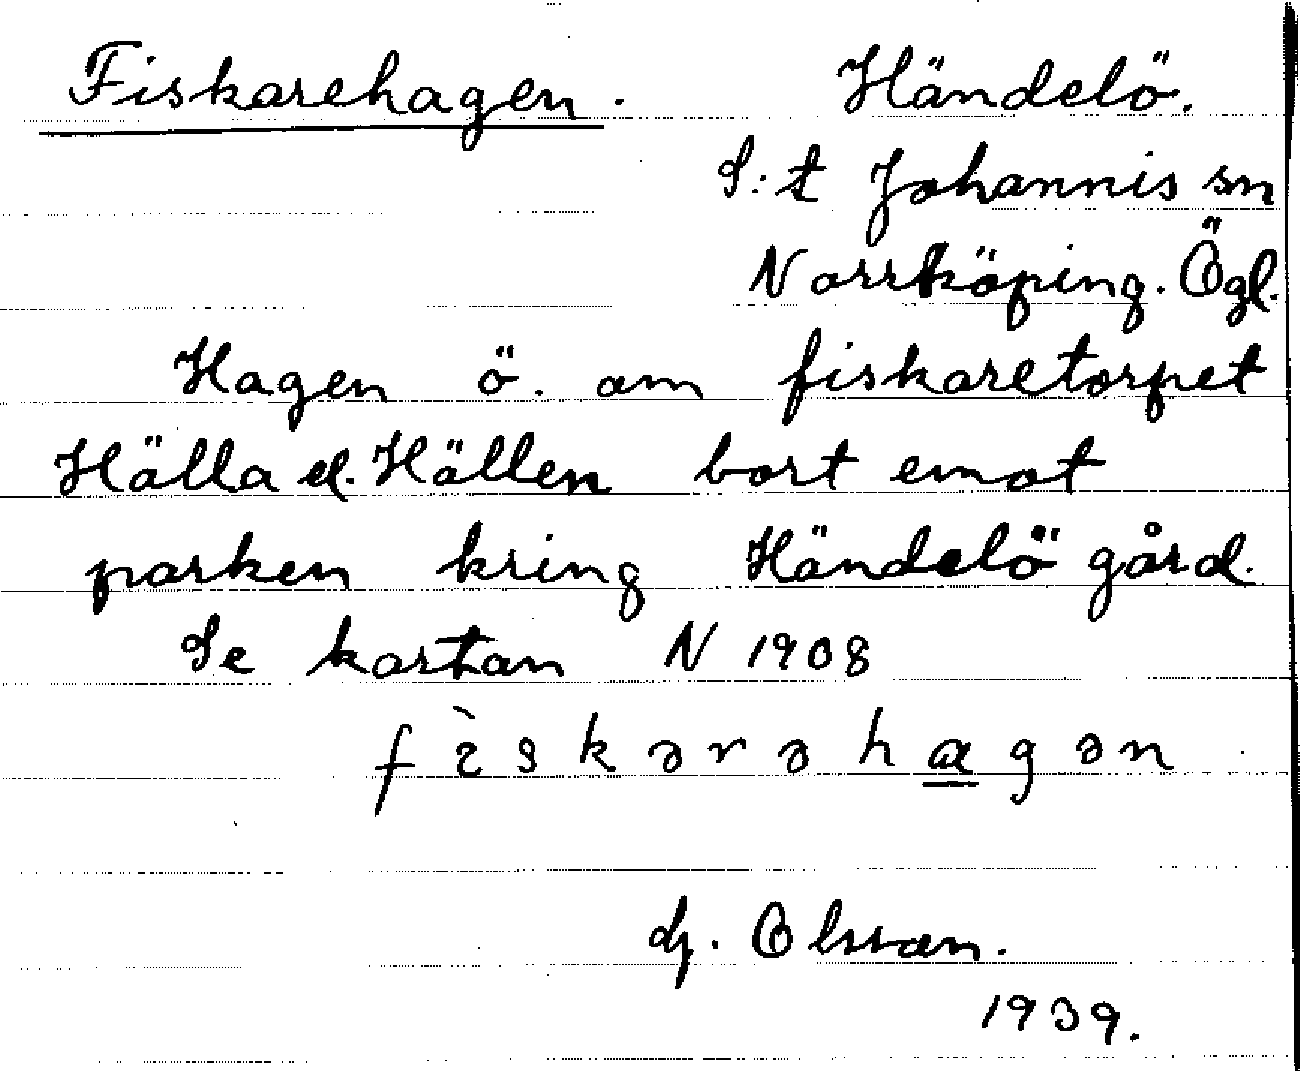 Fiskarehagen. Händelö.
S:t Johannis sn
Norrköping. Ögl.
Hagen ö. om fiskaretorpet
Hälla el. Hällen bort emot
parken kring Händelö gård.
Se kartan N 1908
fìskərəhagən
G. Olsson.
1939.